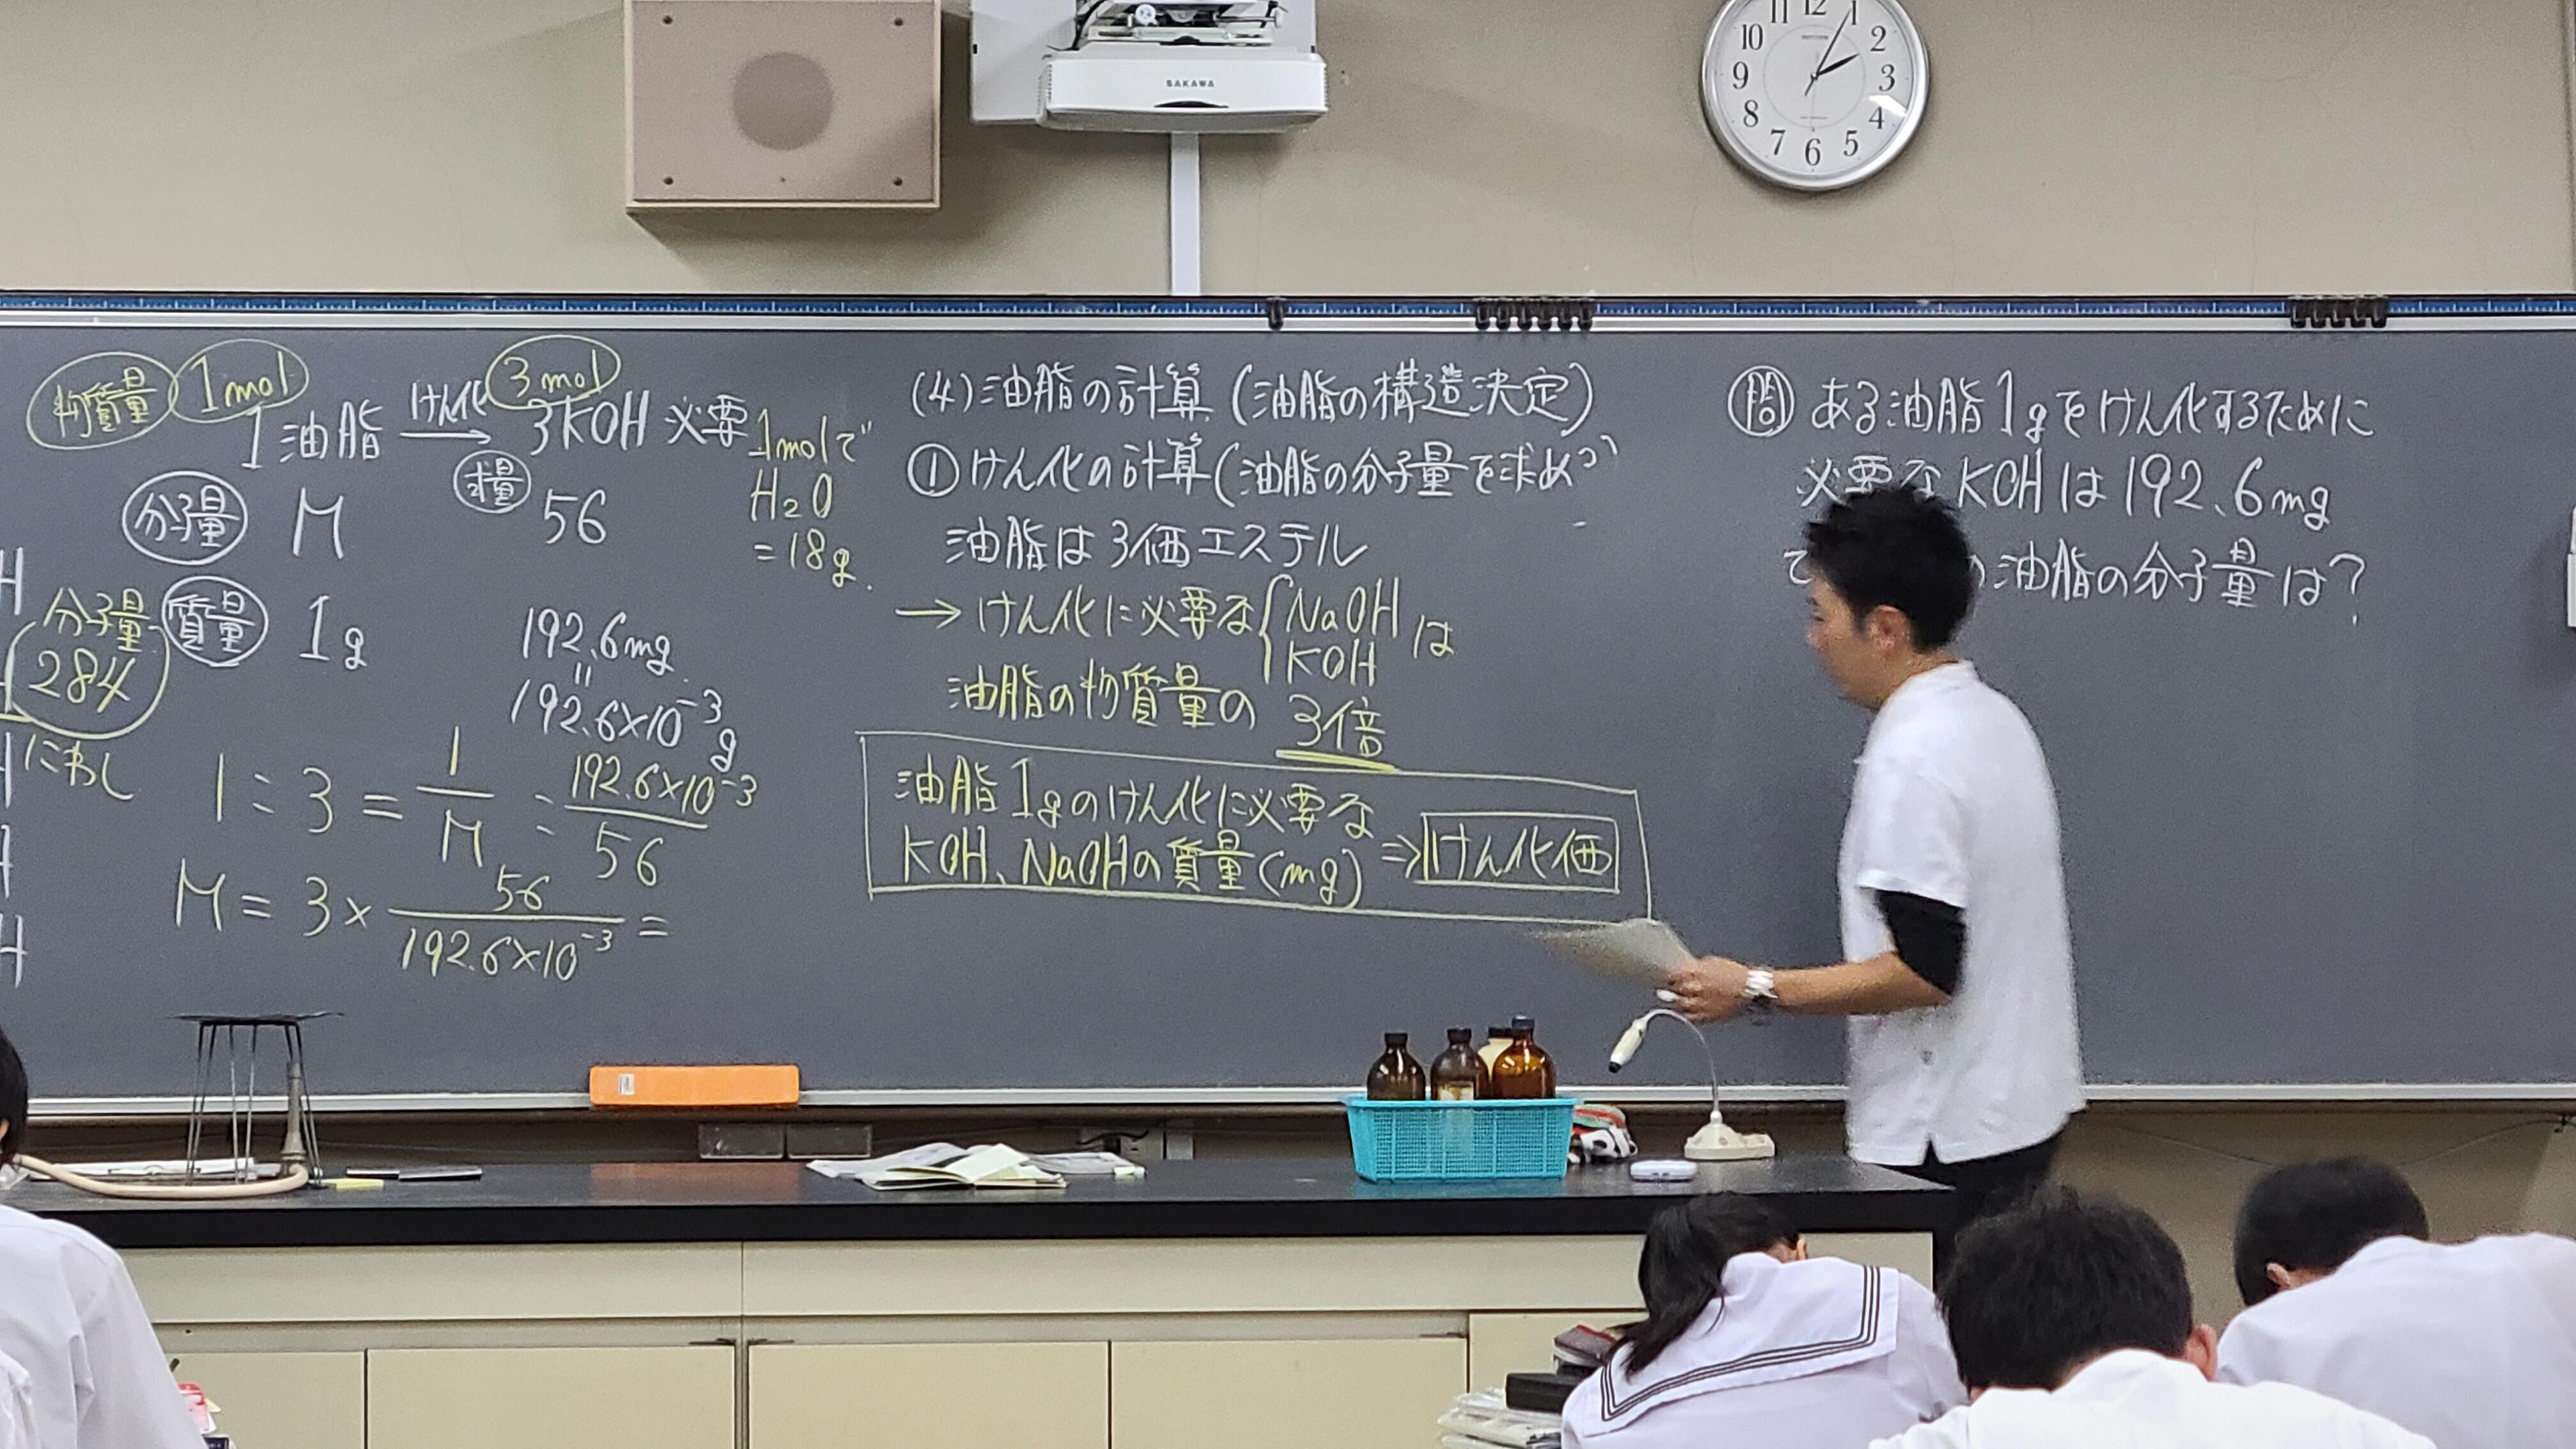 SAKAWA
11 12 1
10 2
9 3
8 4
7 6 5
物質量 1mol 3mol
1油脂 けん化 → 3KOH 必要
1molで
H₂O
=18g
分子量 M 式量 56
質量 1g 192.6mg
"
192.6×10⁻³g
1:3 = 1/M : 192.6×10⁻³/56
M = 3× 56/192.6×10⁻³ =
分子量
284
H
H
H
H
(4)油脂の計算(油脂の構造決定)
①けん化の計算(油脂の分子量を求めつ
油脂は3価エステル
→けん化に必要な{NaOH KOH は
油脂の物質量の 3倍
油脂1gのけん化に必要な
KOH、NaOHの質量(mg) ⇒けん化価
問 ある油脂1gをけん化するために
必要なKOHは192.6mg
で の油脂の分子量は?